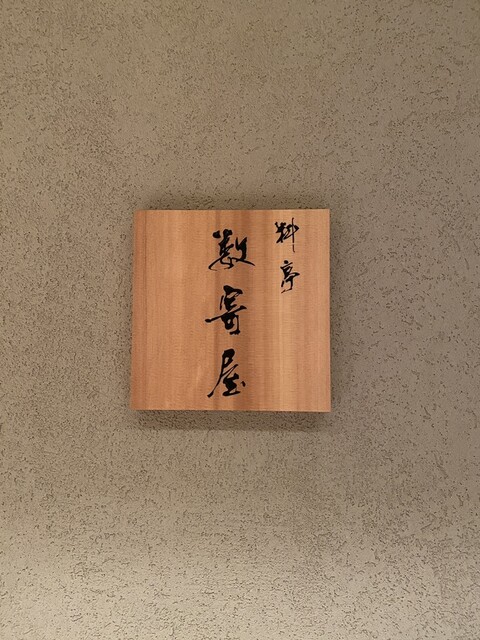 料亭
数寄屋